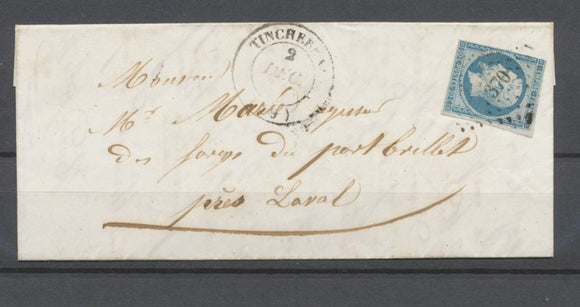 TINCHEBRAY
2
DEC.
Monsieur
Mr Marie
des forges du port brillet
près Laval